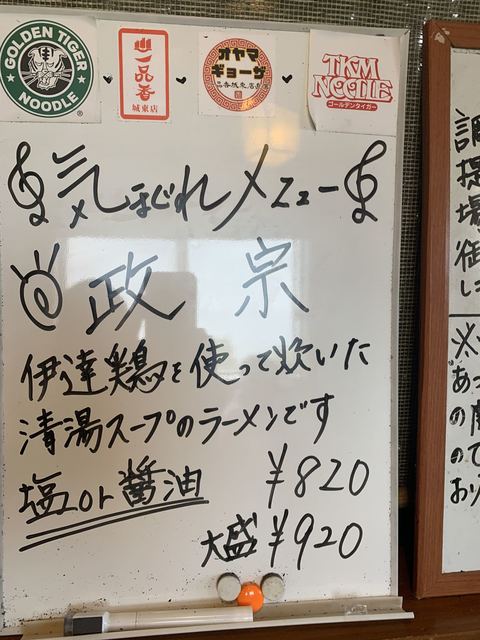 GOLDEN TIGER
NOODLE
®
一品香
城東店
オヤマ
ギョーザ
TKM
NOODLE
ゴールデンタイガー
気まぐれメニュー
政宗
伊達鶏を使って炊いた
清湯スープのラーメンです
塩or醤油 ¥820
大盛¥920
調
提
場
御
し
※
あっ
の
ので
おり